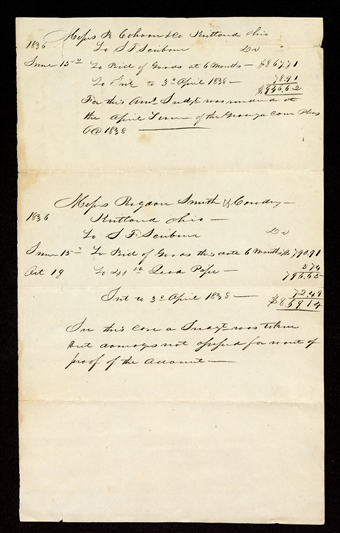 Messrs R Cahoon & Co Kirtland Ohio
1836 To S F Scribner Dr
June 15th To Bill of Goods at 6 Months — $867,71
To Int to 3d April 1838 — 78 91
$946.62
For this Amt Judgt was rendered at
the April Term of the Geauga Com Pleas
AD 1838
Messrs Rigdon Smith & Cowdry —
1836 Kirtland Ohio —
To S F Scribner Dr
June 15th To Bill of Goods this date 6 Months $790,91
Oct 19 To 41 lb Lead Pipe — 5 74
796.65
Int to 3d April 1838 — 72 49
$869.14
In this Case a Judgt was taken
but damages not assessed for want of
proof of the Account —